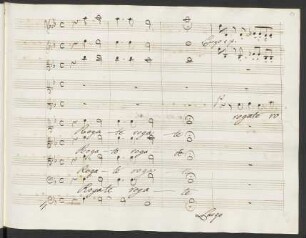 rogate ro
Roga-te roga-te
Roga-te roga-te
Roga-te roga-te
Rogate roga-te
Largo